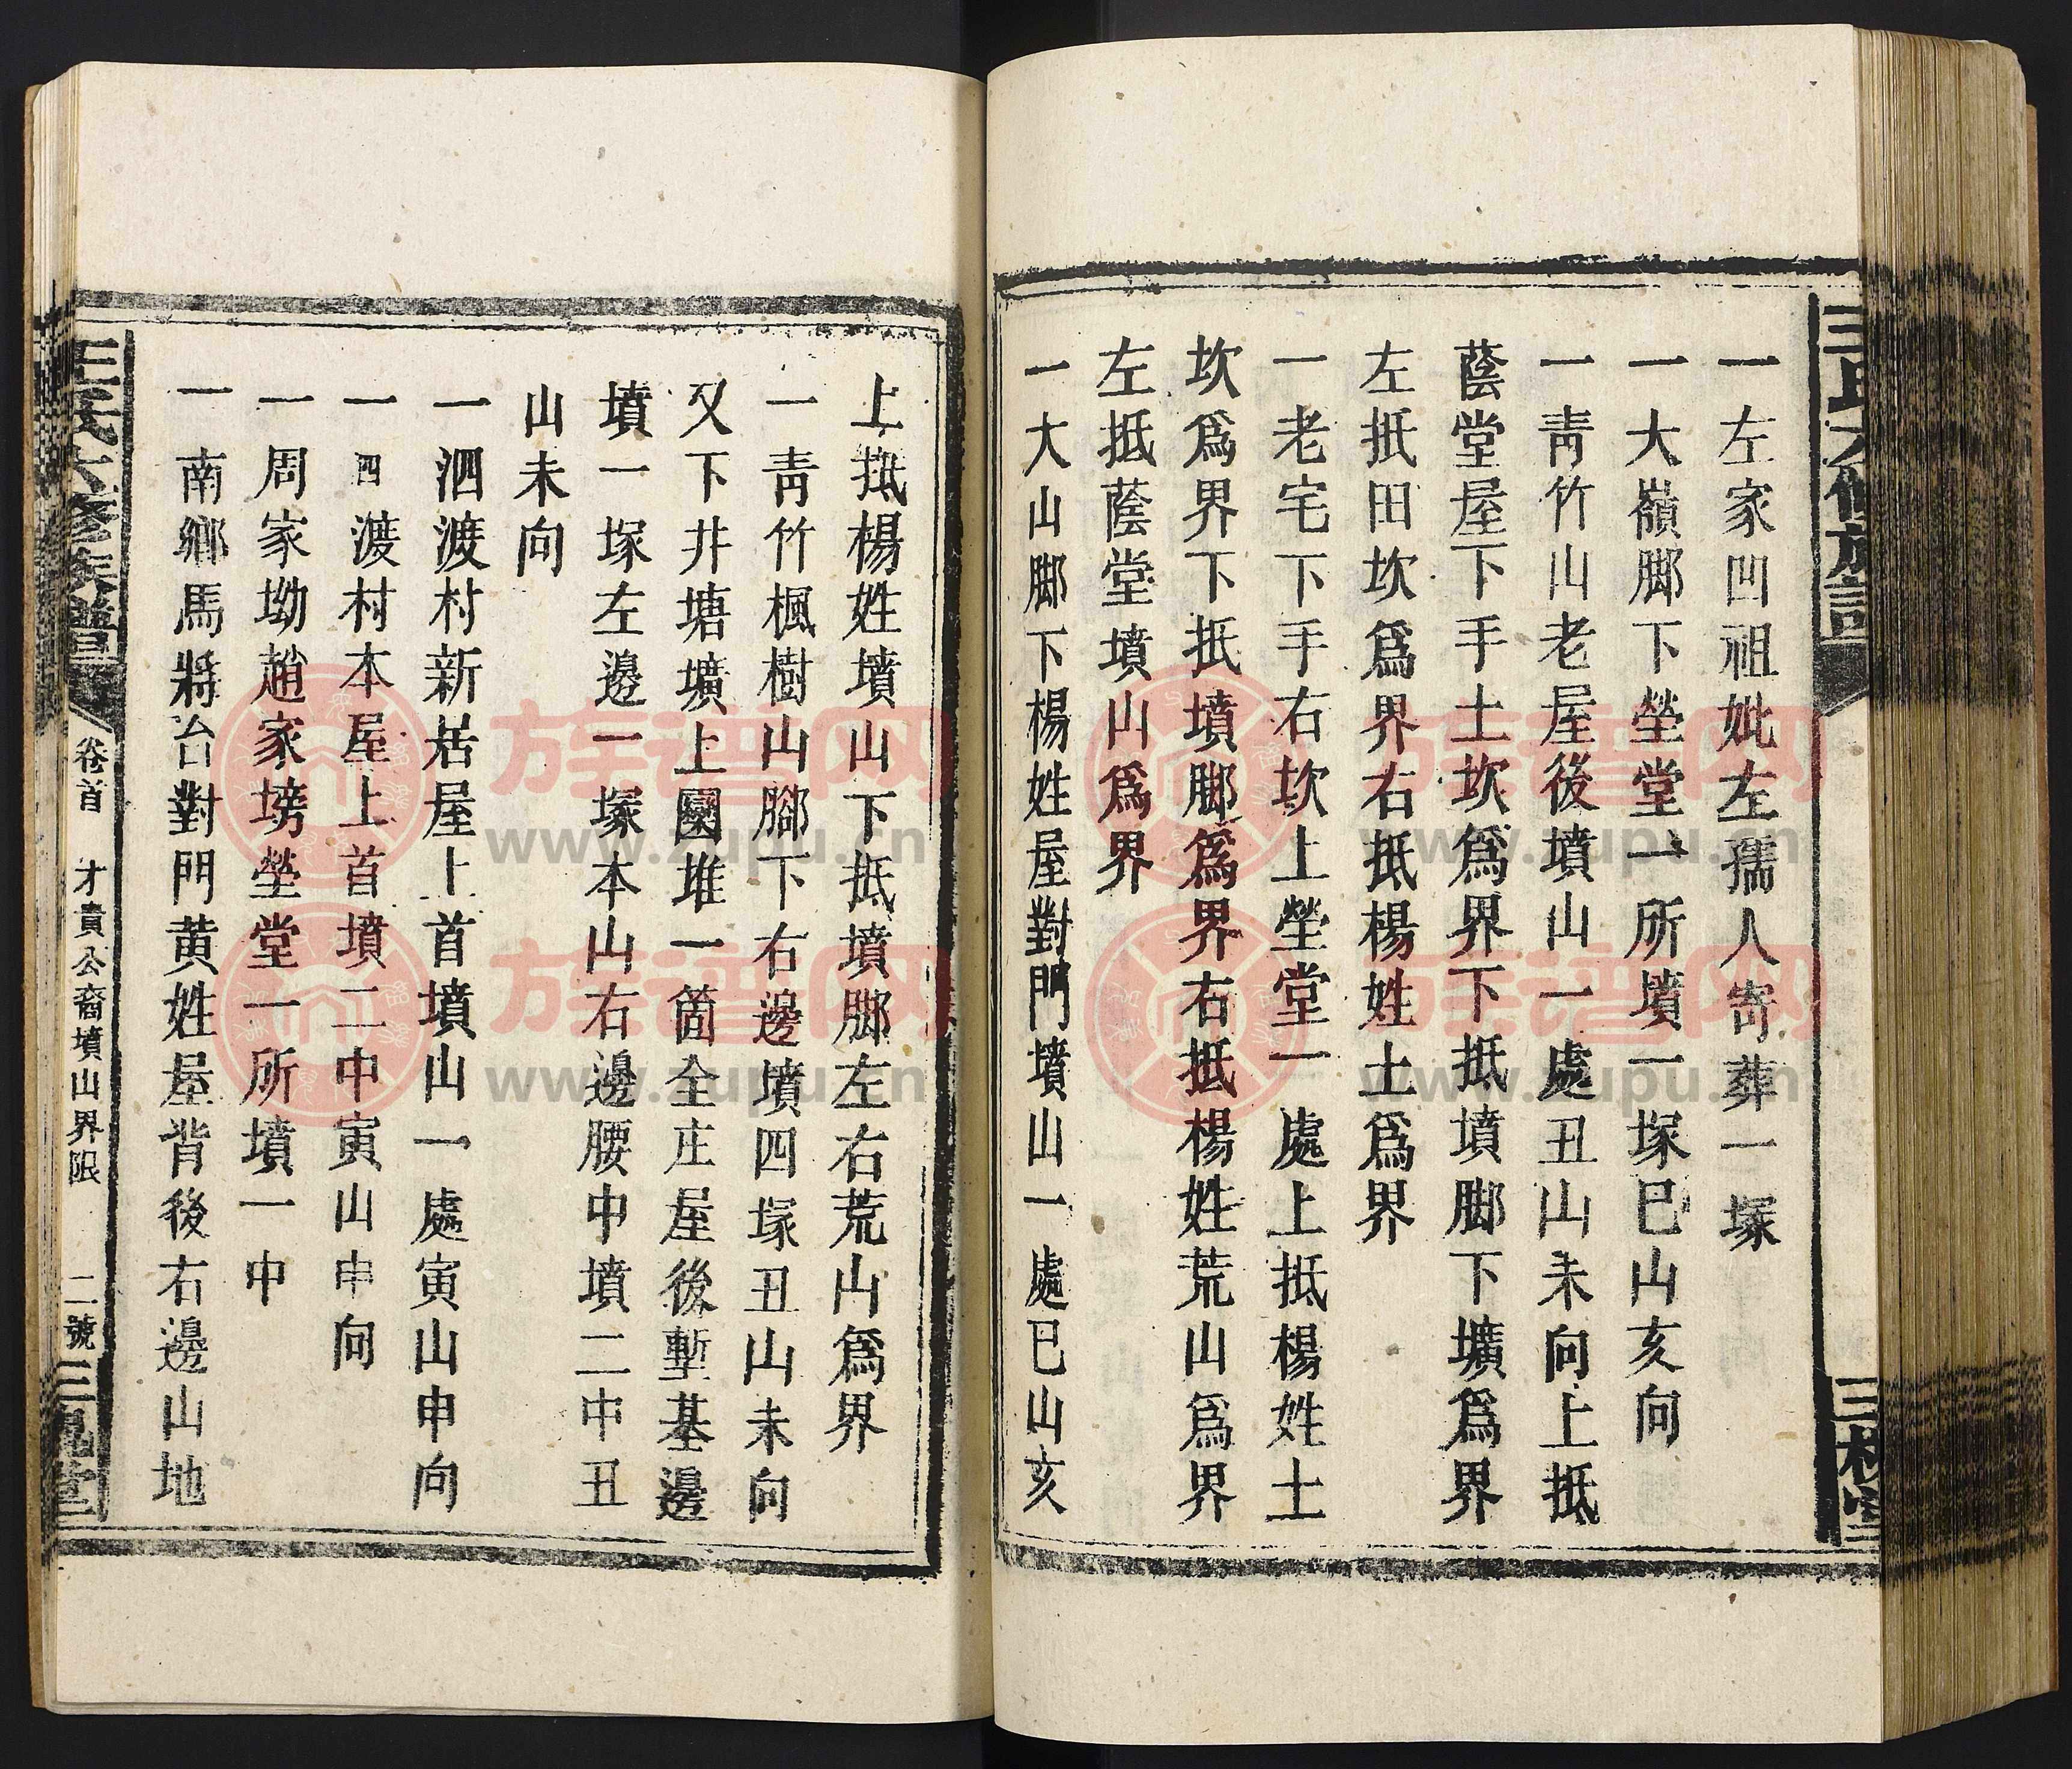 一左家凹祖妣左孺人寄葬一塚
一大嶺脚下塋堂一所墳一塚巳山亥向
一青竹山老屋後墳山一處丑山未向上抵
蔭堂屋下手土坎爲界下抵墳脚下壙爲界
左抵田坎爲界右抵楊姓土爲界
一老宅下手右坎上塋堂一處上抵楊姓土
坎爲界下抵墳脚爲界右抵楊姓荒山爲界
左抵蔭堂墳山爲界
一大山脚下楊姓屋對門墳山一處巳山亥
上抵楊姓墳山下抵墳脚左右荒山爲界
一青竹楓樹山腳下右邊墳四塚丑山未向
又下井塘壙上圞堆一箇全庄屋後塹基邊
墳一塚左邊一塚本山右邊腰中墳二中丑
山未向
一泗渡村新居屋上首墳山一處寅山申向
一四渡村本屋上首墳二中寅山申向
一周家坳趙家塝塋堂一所墳一中
一南鄉馬將台對門黄姓屋背後右邊山地
王氏六修族譜
卷首
才貴公裔墳山界限
二號
三槐堂
族谱网
www.zupu.cn
族谱网
www.zupu.cn
族谱网
www.zupu.cn
族谱网
www.zupu.cn